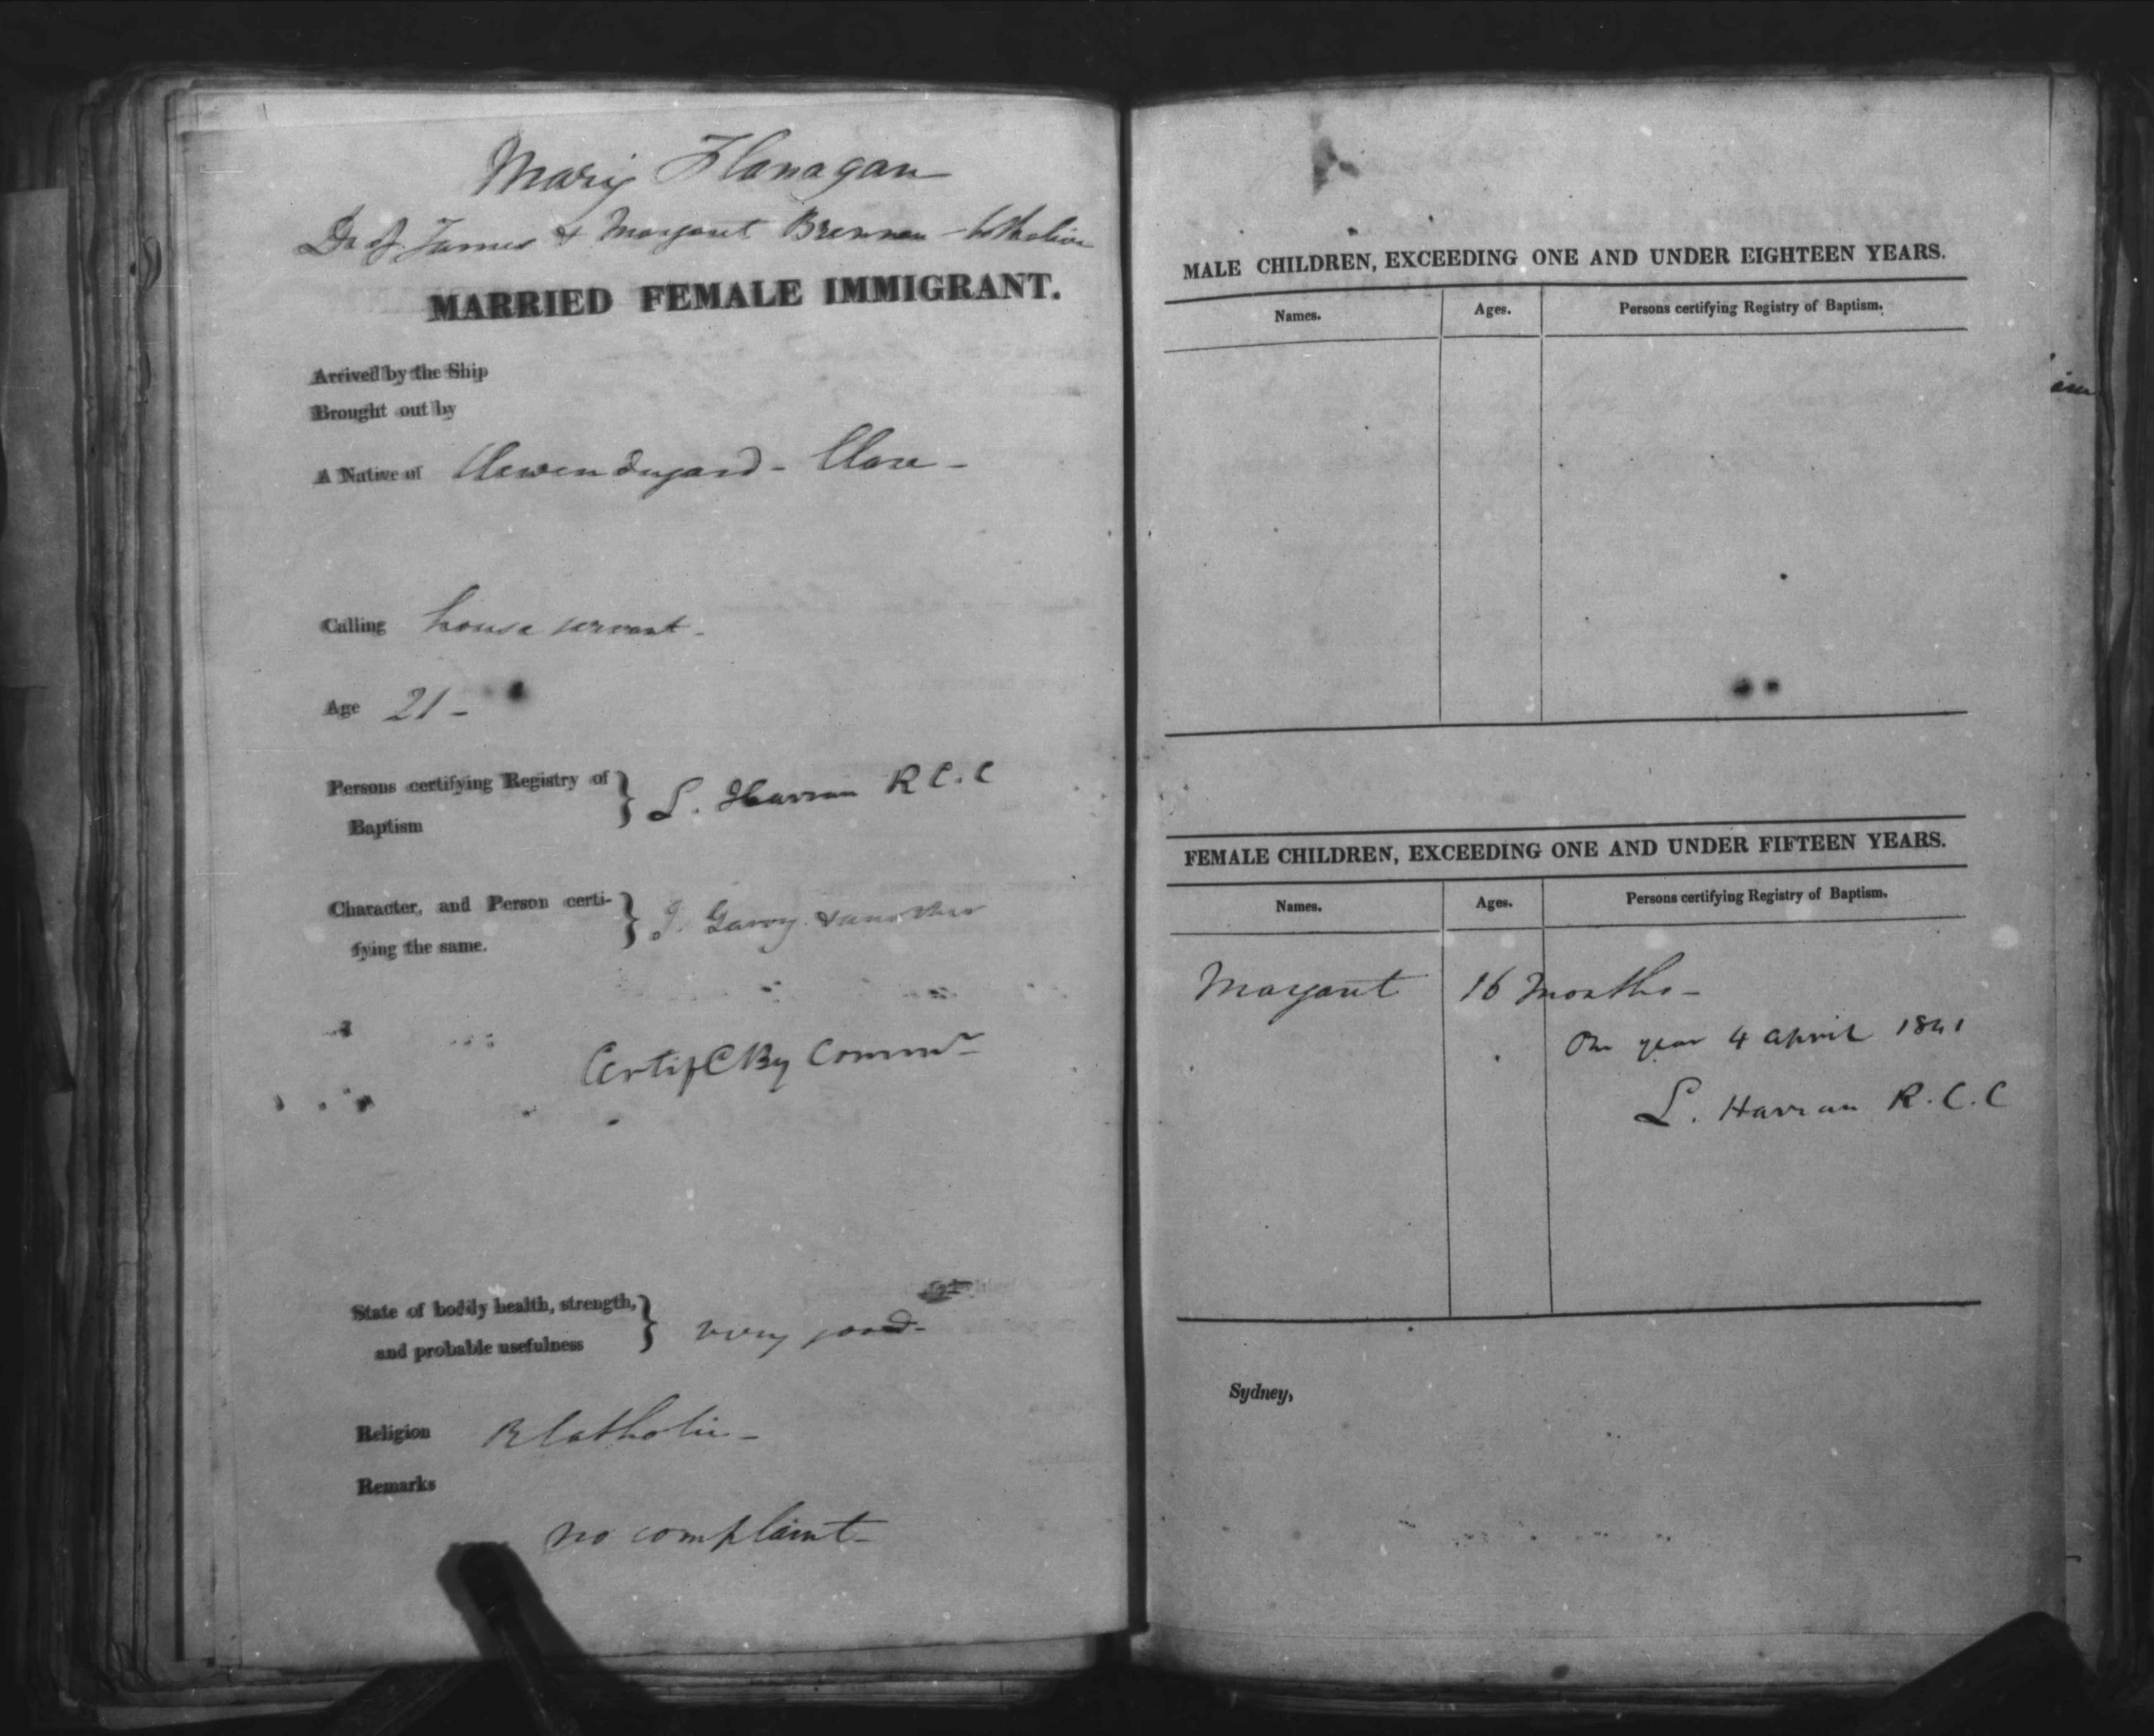 Mary Flanagan
Dr of James & Margaret Brennan
MARRIED FEMALE IMMIGRANT.
Arrived by the Ship
Brought out by
A Native of Clare -
Calling house servant -
Age 21 -
Persons certifying Registry of Baptism } L. Harran R C. C
Character, and Person certi-
fying the same. } J. Garvy & another
Certif By
State of bodily health, strength,
and probable usefulness } very good -
Religion R Catholic -
Remarks
no complaint -
MALE CHILDREN, EXCEEDING ONE AND UNDER EIGHTEEN YEARS.
Names. Ages. Persons certifying Registry of Baptism.
FEMALE CHILDREN, EXCEEDING ONE AND UNDER FIFTEEN YEARS.
Names. Ages. Persons certifying Registry of Baptism.
Margaret 16 Months -
One year 4 April 1841
L. Harran R. C. C
Sydney,